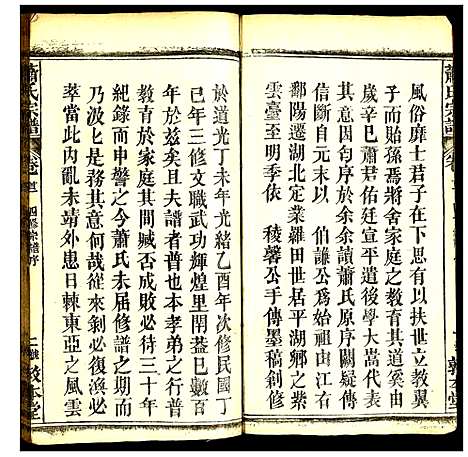 蕭氏宗譜
風俗靡士君子在下思有以扶世立教翼
子而貽孫焉將舍家庭之教育其道奚由
歲辛巳蕭君仰宣平遺後大當代表
因其宜有序於余余讀蕭氏原序闕疑傳
信斷自元末以 伯謙公爲始祖由江右
鄱陽遷湖北定業羅田世居平湖鄉之紫
雲臺至明季依 稜馨公手傳墨稿創修
於道光丁未年光緒乙酉年次修民國丁
巳年三修文職武功輝煌里閈蓋已數百
年於茲矣且夫譜者普也本孝弟之行普
教育於家庭其間臧否成敗必待三十年
紀錄而申警之今蕭氏未屆修譜之期而
乃汲匕爲其意何哉從來剝必復否必
萃當此內亂未靖外患日棘東亞之風雲
蕭氏宗譜
卷首 四修宗譜序
二 敦本堂